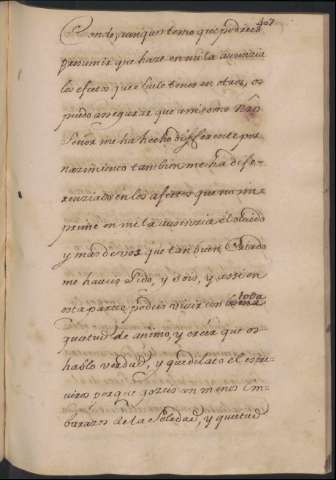 407
Conde, aunque temo que podreis
presumir que haze en mi la ausenzia
los efetos que suele tener en otros, os
puedo assegurar que assi como Nro
Señor me ha hecho differente por
nazimiento tambien me ha dife-
renziado en los afectos que no im-
prime en mi la ausenzia el oluido
y mas de vos que tan buen Criado
me haueis sido, y sois, y assi en
esta parte podeis viuir con toda
quietud de animo, y creer que os
hablo verdad, y que dilato el escri-
uiros porque gozeis con menos em-
barazos de la Soledad, y quietud